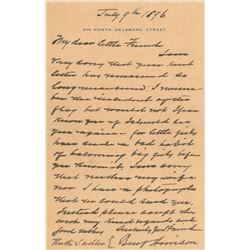 July 9th 1896
674 NORTH DELAWARE STREET.
My dear little Friend
I am
very sorry that your kind
letter has remained so
long unanswered. I remem
ber the incident of the
flag but would not
know you if I should see
you again - for little girls
have such a bad habit
of becoming big girls before
you know it. I am sorry
that neither my wife
nor I have a photograph
that we could send you.
Instead please accept this
with my kind regards and
good wishes Sincerely Your Friend
Ruth Sadler Benj Harrison